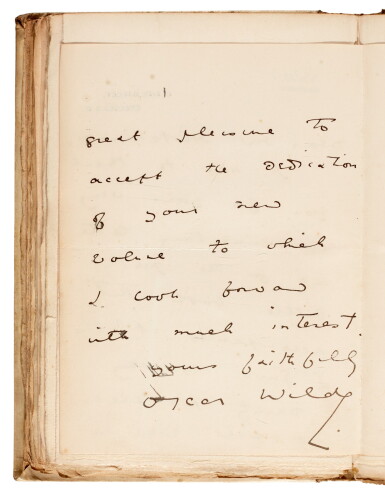 great pleasure to
accept the dedication
of your new
volume to which
I look forward
with much interest.
yours faithfully
Oscar Wilde